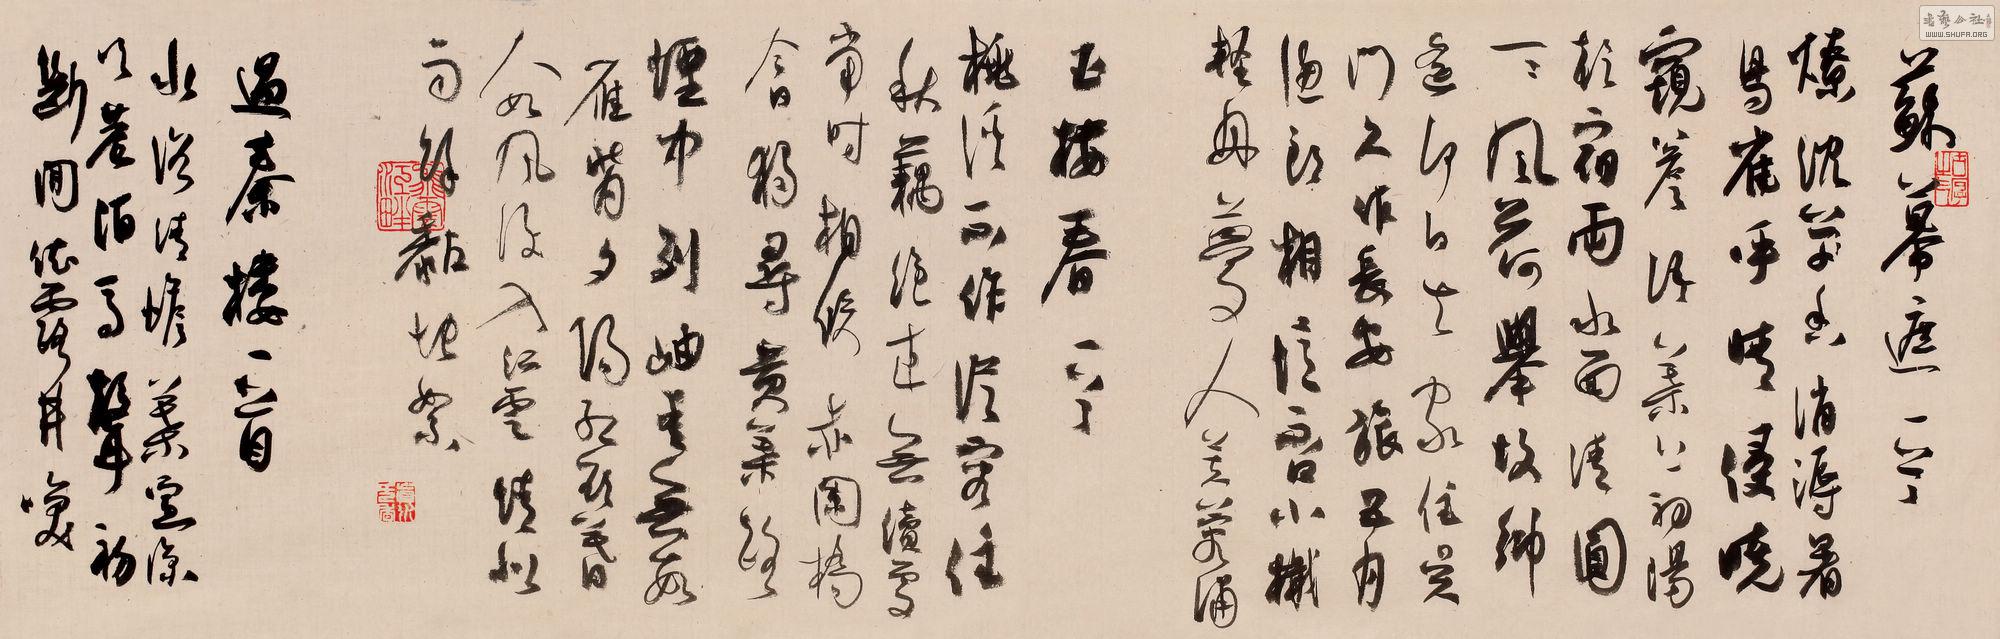 蘇幕遮
燎沈香消溽暑
鳥雀呼晴侵曉
窺簷語葉上初陽
乾宿雨水面清圓
一一風荷舉故鄉
遙何日去家住吳
門久作長安旅五月
漁郎相憶否小檝
輕舟夢入芙蓉浦
玉樓春
桃溪不作從容住
秋藕絕來無續處
當時相候赤闌橋
今日獨尋黃葉路
煙中列岫青無數
雁背夕陽紅欲暮
人如風後入江雲情似
雨餘黏地絮
過秦樓一首
水浴清蟾葉喧涼
吹巷陌馬聲初
斷閒依露井喚
WWW.SHUFA.ORG